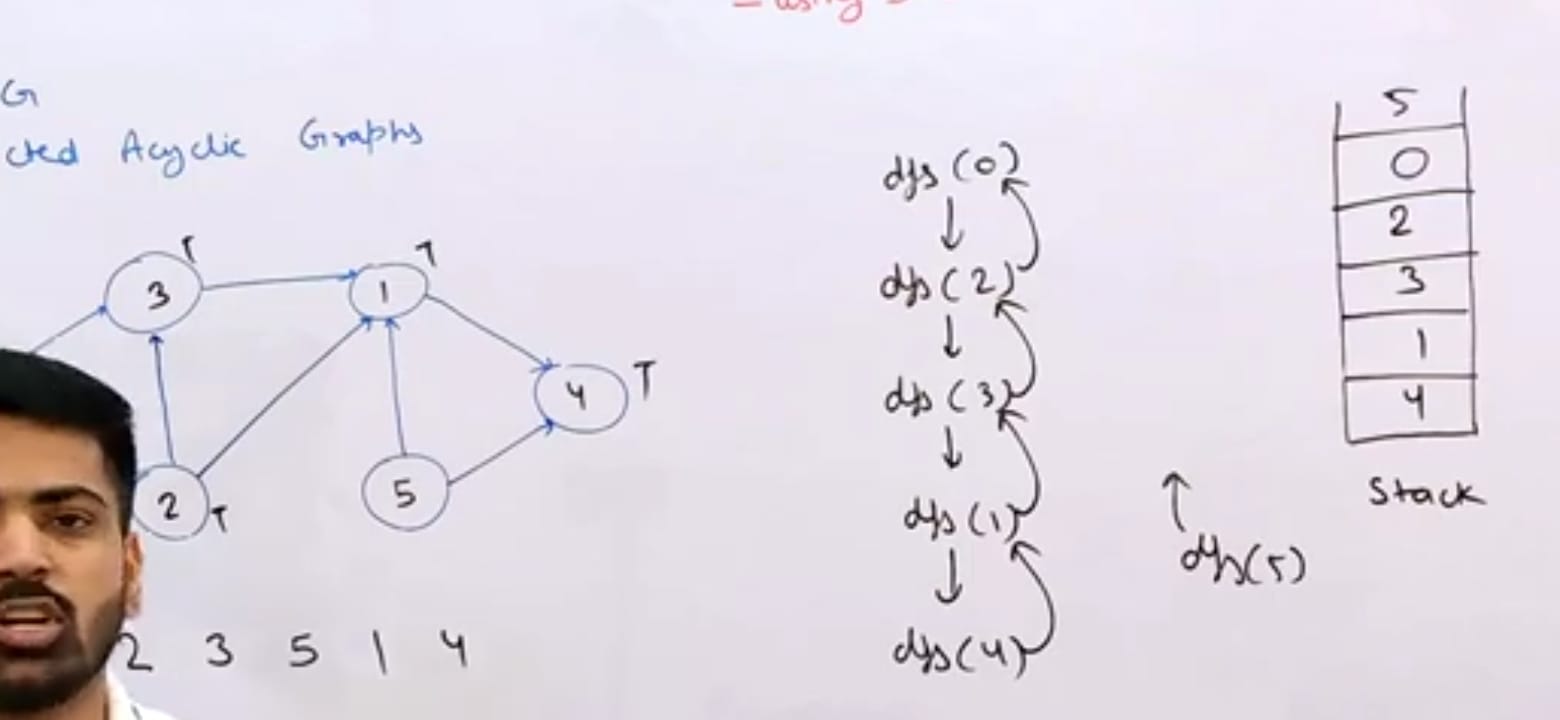 - using
G
cted Acyclic Graphs
3 T
1 T
4 T
2 T
5
2 3 5 1 4
dfs (0)
↓
dfs (2)
↓
dfs (3)
↓
dfs (1)
↓
dfs (4)
↑
dfs(5)
5
0
2
3
1
4
Stack